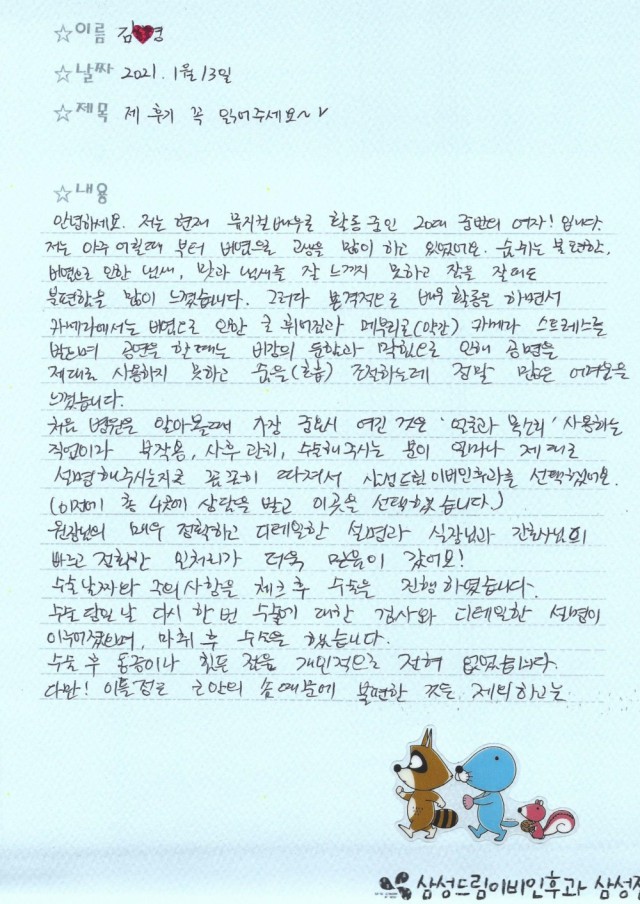 ☆이름 김♥영
☆날짜 2021. 1월 13일
☆제목 제 후기 꼭 읽어주세요~v
☆내용
안녕하세요. 저는 현재 뮤지컬배우로 활동 중인 20대 중반의 여자! 입니다.
저는 아주 어릴때 부터 비염으로 고생을 많이 하고 있었어요. 숨쉬는 불편함,
비염으로 인한 냄새, 맛과 냄새를 잘 느끼지 못하고 잠을 잘때도
불편함을 많이 느꼈습니다. 그러다 본격적으로 배우 활동을 하면서
카메라에서는 비염으로 인한 코 휘어짐과 매부리코(약간) 카메라 스트레스를
받으며 공연을 할때는 비강의 통함과 막힘으로 인해 공명을
제대로 사용하지 못하고 숨을(호흡) 조절하는데 정말 많은 어려움을
느꼈습니다.
처음 병원을 알아볼때 가장 중요시 여긴 것은 '얼굴과 목소리' 사용하는
직업이라 부작용, 사후 관리, 수술해주시는 분이 얼마나 제대로
설명해주시는지로 꼼꼼히 따져서 삼성드림이비인후과를 선택했어요.
(이전에 총 4곳에 상담을 받고 이곳을 선택했습니다.)
원장님의 매우 정확하고 디테일한 설명과 실장님과 간호사님의
빠르고 정확한 일처리가 더욱 믿음이 갔어요!
수술날짜와 주의사항을 체크 후 수술을 진행하였습니다.
수술 당일 날 다시 한 번 수술에 대한 검사와 디테일한 설명이
이루어졌으며, 마취 후 수술을 했습니다.
수술 후 통증이나 힘든 점은 개인적으로 전혀 없었습니다.
다만! 이틀정도 코안의 솜때문에 불편한 것을 제외하고는
삼성드림이비인후과 삼성점